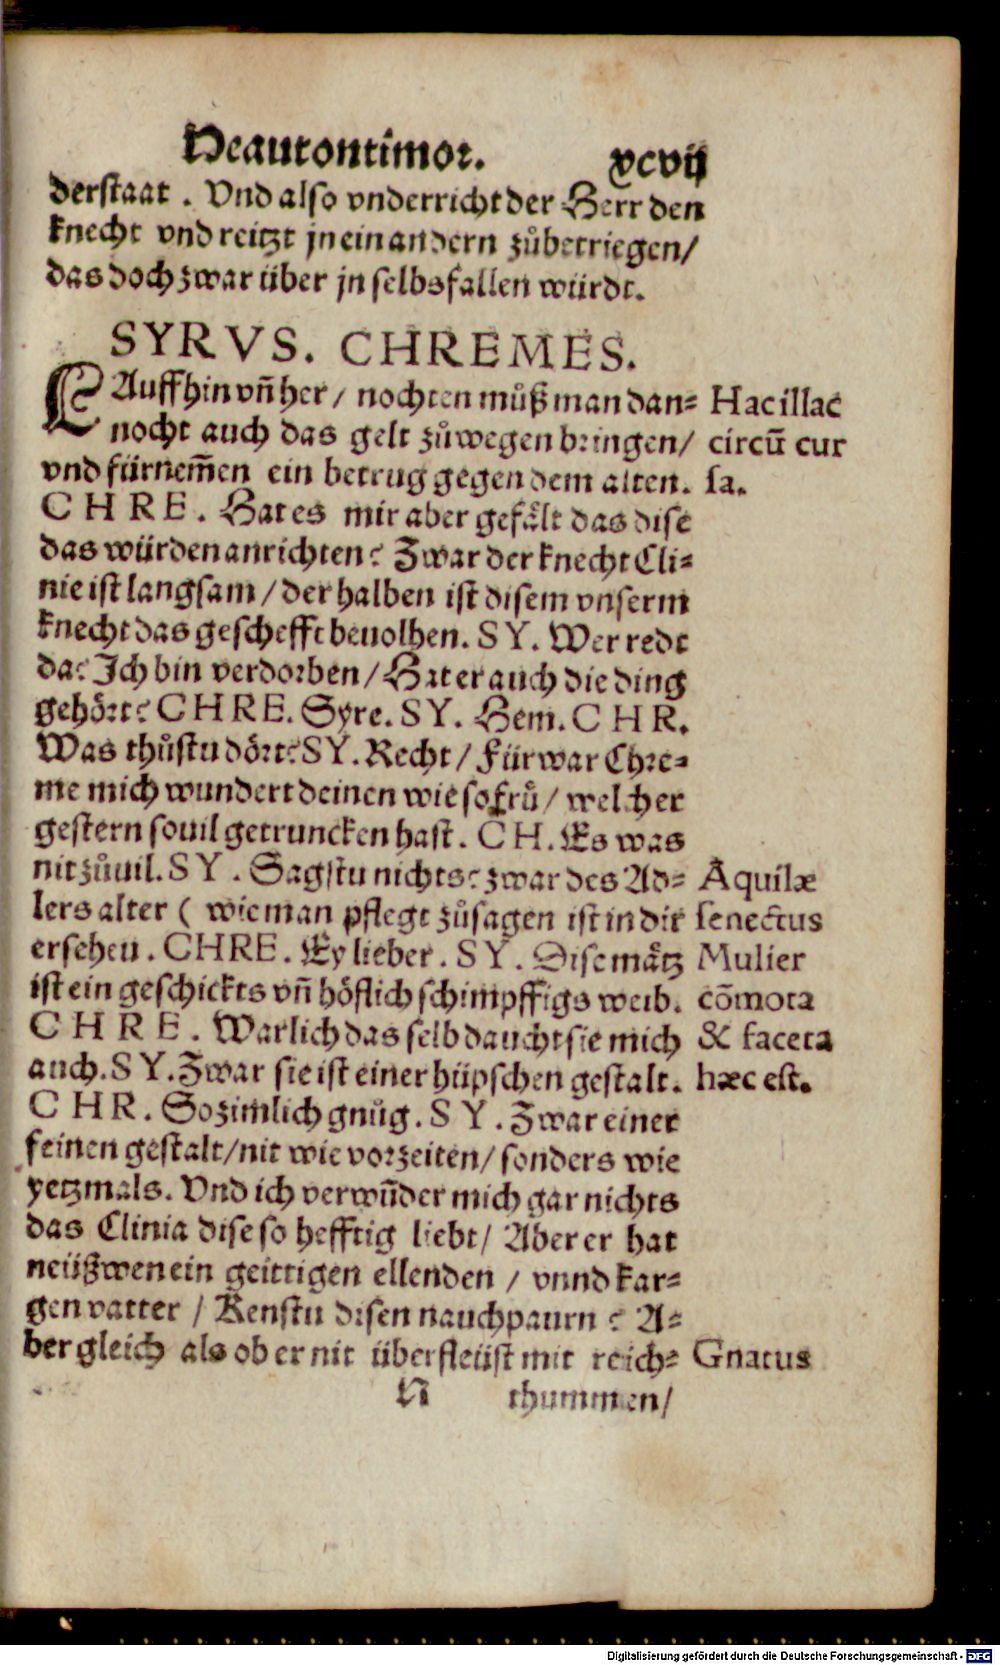 Heautontimor. xcvij
derstaat. Vnd also vnderricht der Herr den
knecht vnd reitzt jn ein andern zůbetriegen/
das doch zwar über jn selbs fallen würdt.
SYRVS. CHREMES.
LAuff hin vñ her/ nochten můß man dan=
nocht auch das gelt zůwegen bringen/
vnd fürnem̄en ein betrug gegen dem alten.
Hac illac
circū cur
sa.
CHRE. Hat es mir aber gefålt das dise
das würden anrichten? Zwar der knecht Cli=
nie ist langsam/ der halben ist disem vnserm
knecht das geschefft beuolhen. SY. Wer redt
da? Ich bin verdorben/ Hat er auch die ding
gehört? CHRE. Syre. SY. Hem. CHR.
Was thůstu dört? SY. Recht/ Fürwar Chre=
me mich wundert deinen wie so frů/ welcher
gestern souil getruncken hast. CH. Es was
nit zůuil. SY. Sagstu nichts? zwar des Ad=
lers alter ( wie man pflegt zůsagen ist in dir
ersehen. CHRE. Ey lieber. SY. Dise måtz
ist ein geschickts vñ höflich schimpffigs weib.
CHRE. Warlich das selb daucht sie mich
auch. SY. Zwar sie ist einer hüpschen gestalt.
Aquilæ
senectus
Mulier
cōmota
& faceta
hæc est.
CHR. So zimlich gnůg. SY. Zwar einer
feinen gestalt/ nit wie vorzeiten/ sonders wie
yetzmals. Vnd ich verwūder mich gar nichts
das Clinia dise so hefftig liebt/ Aber er hat
neüßwen ein geittigen ellenden/ vnnd kar=
gen vatter/ Kenstu disen nauchpaurn? A=
ber gleich als ob er nit überfleüst mit reich=
Gnatus
N thummen/
Digitalisierung gefördert durch die Deutsche Forschungsgemeinschaft - DFG